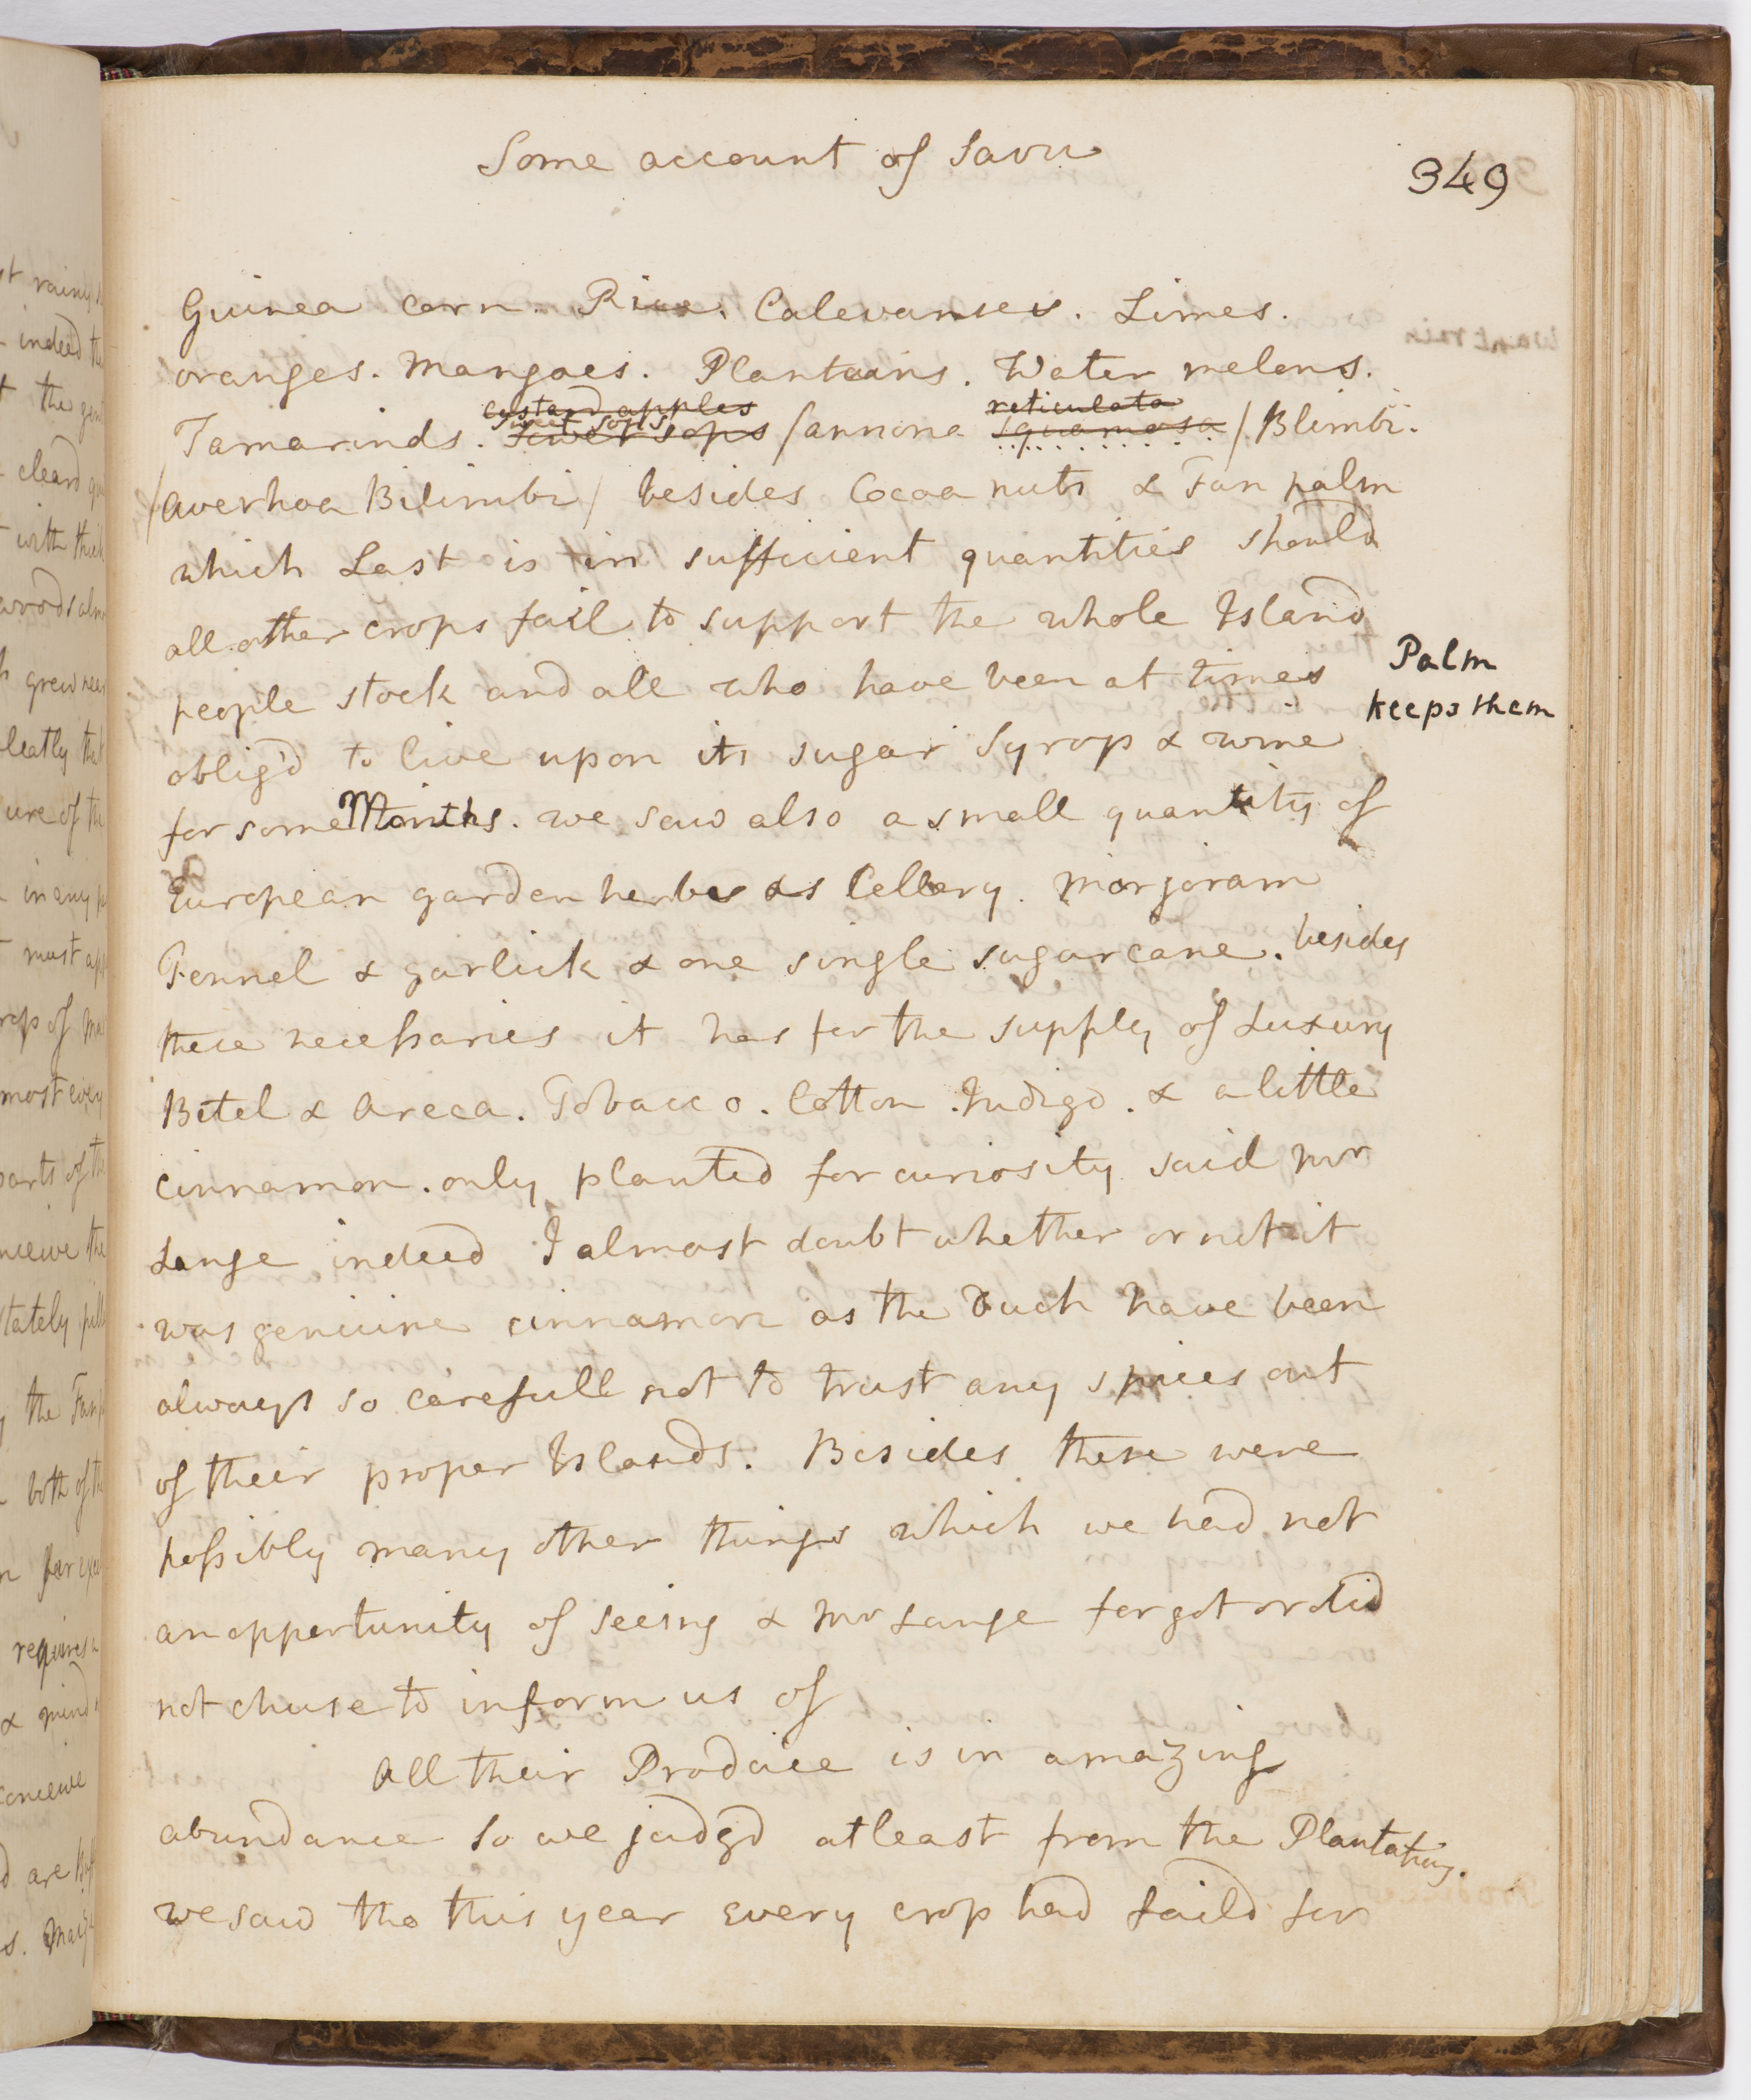 Some account of Savu
349
Guinea corn. Rice. Calevanses. Limes.
oranges. Mangoes. Plantains. Water melons.
custard apples reticulata
sweet sops
Tamarinds. sower sops /annona squamosa/ Blimbi.
/averhoa Bilimbi/ besides Cocoa nuts & Fan palm
which Last is in sufficient quantities should
all other crops fail to support the whole Island
people stock and all who have been at times
Palm
keeps them
oblig'd to live upon its sugar Syrop & wine
for some Months. we saw also a small quantity of
European garden herbs as Cellery. Marjoram
Fennel & garlick & one single sugar cane. besides
these necessaries it has for the supply of Luxury
Betel & Areca. Tobacco. Cotton. Indigo. & a little
cinnamon. only planted for curiosity said Mr
Lange indeed I almost doubt whether or not it
was genuine cinnamon as the Duch have been
always so carefull not to trust any spices out
of their proper Islands. Besides these were
possibly many other things which we had not
an oppertunity of seeing & Mr Lange forgot or did
not chuse to inform us of
All their Produce is in amazing
abundance so we judgd at least from the Plantations.
we saw tho this year every crop had faild for